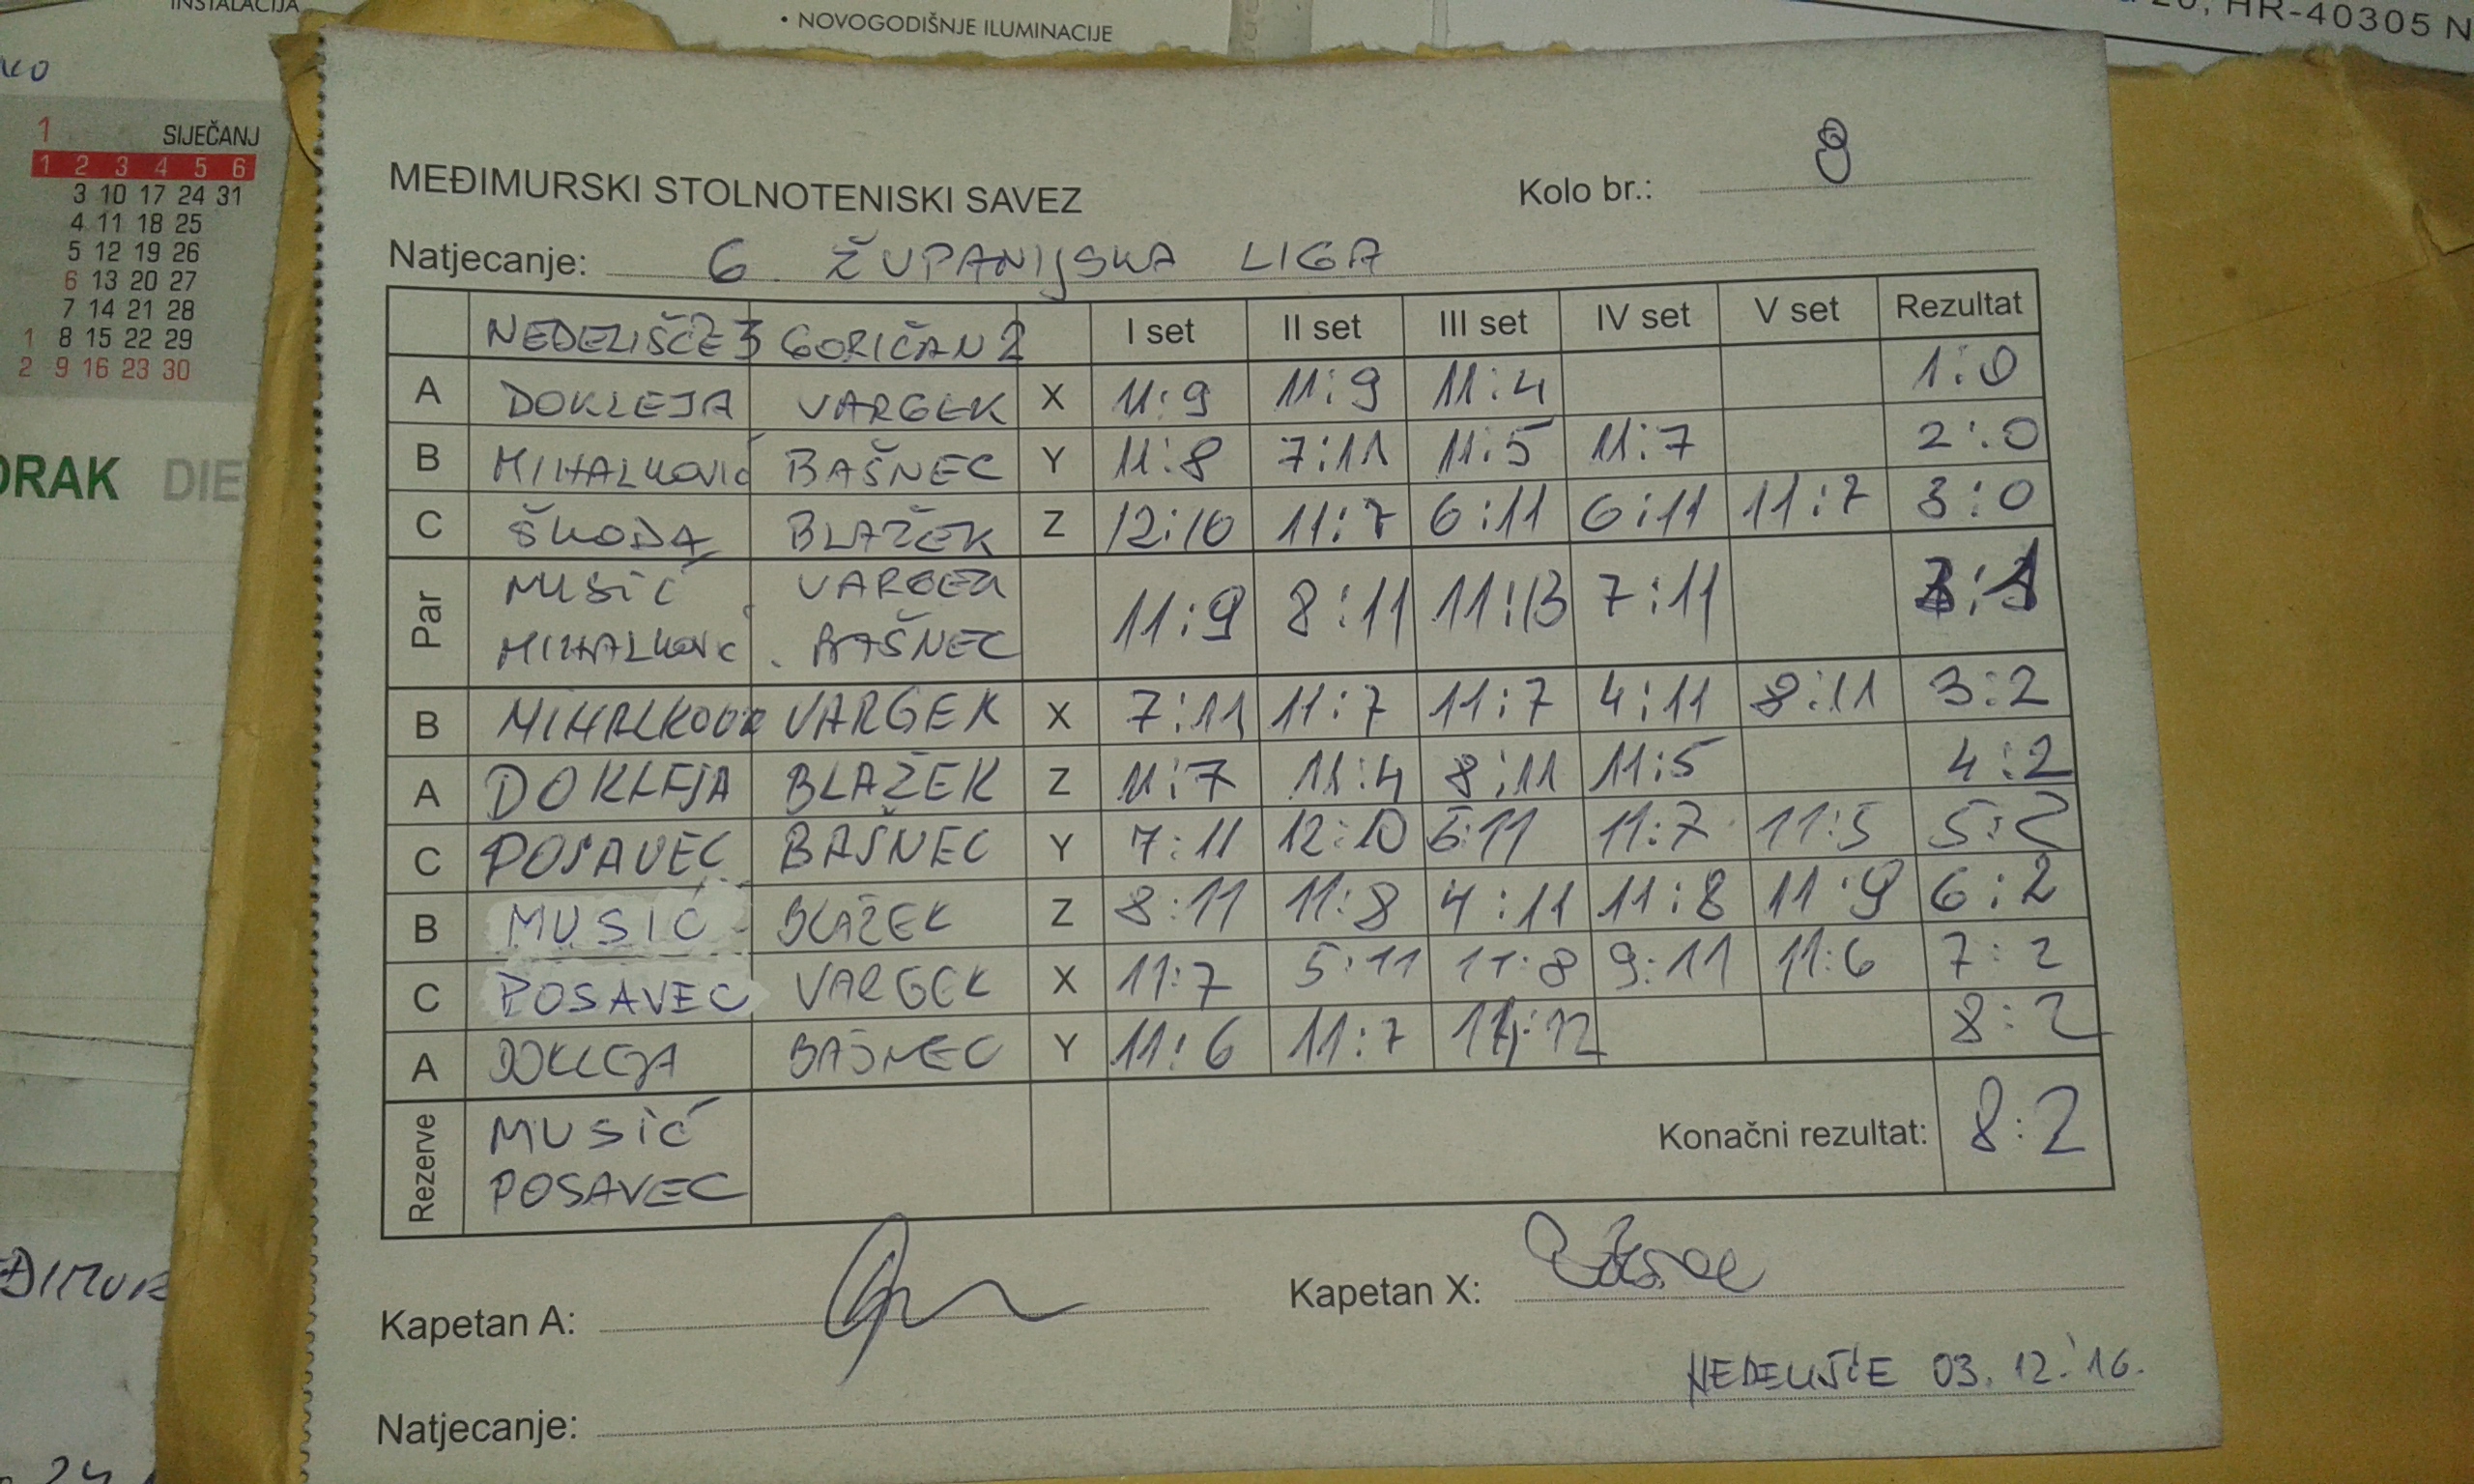 INSTALACIJA
• NOVOGODIŠNJE ILUMINACIJE
20, HR-40305 N
1 SIJEČANJ
1 2 3 4 5 6
3 10 17 24 31
4 11 18 25
5 12 19 26
6 13 20 27
7 14 21 28
1 8 15 22 29
2 9 16 23 30
ORAK DIE
MEĐIMURSKI STOLNOTENISKI SAVEZ Kolo br.: 8
Natjecanje: 6. ŽUPANIJSKA LIGA
NEDELIŠĆE 3 GORIČAN 2 I set II set III set IV set V set Rezultat
A DOKLEJA VARGEK X 11:9 11:9 11:4 1:0
B MIHALKOVIĆ BAŠNEC Y 11:8 7:11 11:5 11:7 2:0
C ŠKODA BLAŽEK Z 12:10 11:7 6:11 6:11 11:7 3:0
Par MUSIĆ VARGEK 11:9 8:11 11:13 7:11 3:1
MIHALKOVIĆ BAŠNEC
B MIHALKOVIĆ VARGEK X 7:11 11:7 11:7 4:11 8:11 3:2
A DOKLEJA BLAŽEK Z 11:7 11:4 8:11 11:5 4:2
C POSAVEC BAŠNEC Y 7:11 12:10 6:11 11:7 11:5 5:2
B MUSIĆ BLAŽEK Z 8:11 11:8 4:11 11:8 11:9 6:2
C POSAVEC VARGEK X 11:7 5:11 11:8 9:11 11:6 7:2
A DOKLEJA BAŠNEC Y 11:6 11:7 14:12 8:2
Rezerve MUSIĆ Konačni rezultat: 8:2
POSAVEC
Kapetan A: Kapetan X:
NEDELIŠĆE 03.12.'16.
Natjecanje: